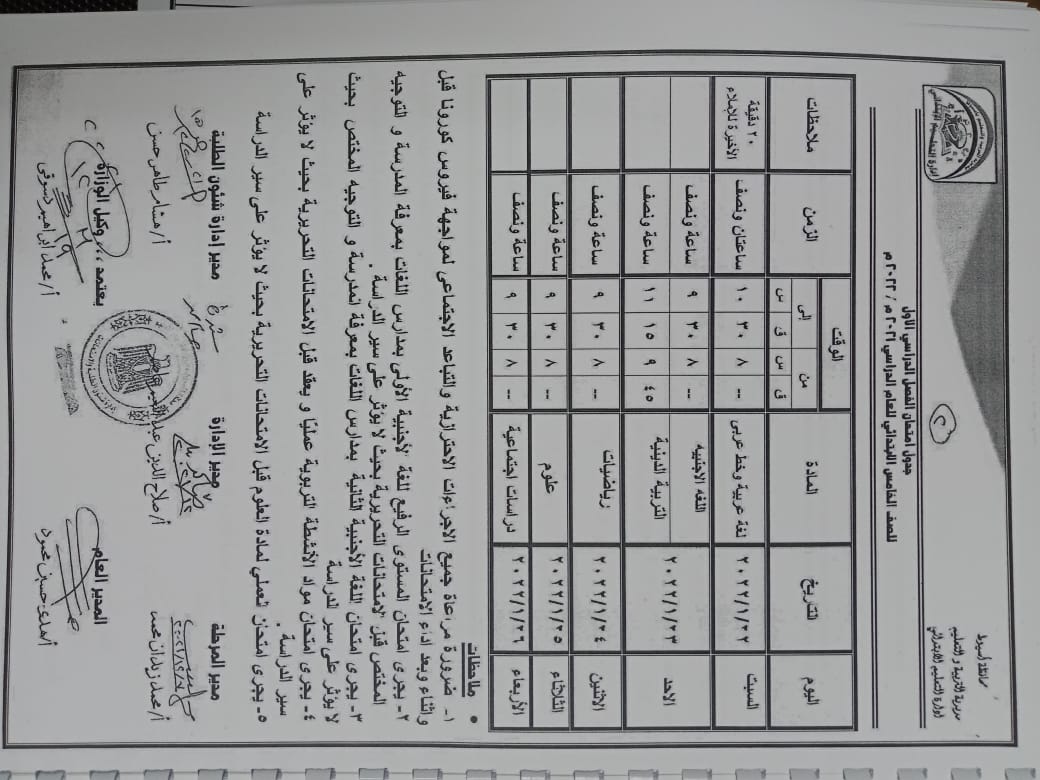 محافظة أسيوط
مديرية التربية و التعليم
إدارة التعليم الابتدائي
جدول امتحان الفصل الدراسي الأول
للصف الخامس الابتدائي للعام الدراسي ٢٠٢١ م / ٢٠٢٢ م
اليوم التاريخ المادة الوقت الزمن ملاحظات
من إلى
ق س ق س
السبت ٢٠٢٢/١/٢٢ لغة عربية وخط عربى -- ٨ ٣٠ ١٠ ساعتان ونصف ٢٠ دقيقة الأخيرة للإملاء
الاحد ٢٠٢٢/١/٢٣ اللغه الاجنبيه -- ٨ ٣٠ ٩ ساعة ونصف
التربية الدينية ٤٥ ٩ ١٥ ١١ ساعة ونصف
الاثنين ٢٠٢٢/١/٢٤ رياضيات -- ٨ ٣٠ ٩ ساعة ونصف
الثلاثاء ٢٠٢٢/١/٢٥ علوم -- ٨ ٣٠ ٩ ساعة ونصف
الأربعاء ٢٠٢٢/١/٢٦ دراسات اجتماعية -- ٨ ٣٠ ٩ ساعة ونصف
• ملاحظات
١- ضرورة مراعاة جميع الاجراءات الاحترازية والتباعد الاجتماعى لمواجهة فيروس كورونا قبل
واثناء وبعد اداء الامتحانات
٢- يجرى امتحان المستوى الرفيع للغة الأجنبية الأولى بمدارس اللغات بمعرفة المدرسة و التوجيه
المختص قبل الامتحانات التحريرية بحيث لا يؤثر على سير الدراسة .
٣- يجرى امتحان اللغة الأجنبية الثانية بمدارس اللغات بمعرفة المدرسة و التوجيه المختص بحيث
لا يؤثر على سير الدراسة
٤- يجرى امتحان مواد الأنشطة التربوية عمليًا و يعقد قبل الامتحانات التحريرية بحيث لا يؤثر على
سير الدراسة .
٥- يجرى امتحان العملي لمادة العلوم قبل الامتحانات التحريرية بحيث لا يؤثر على سير الدراسة
مدير المرحلة مدير الإدارة مدير إدارة شئون الطلبة
أ/محمد زيدان محمد أ/صلاح الدين أ/هشام طاهر حسن
المدير العام يعتمد ،،، وكيل الوزارة
حسين محمود أ/محمد ابراهيم دسوقى